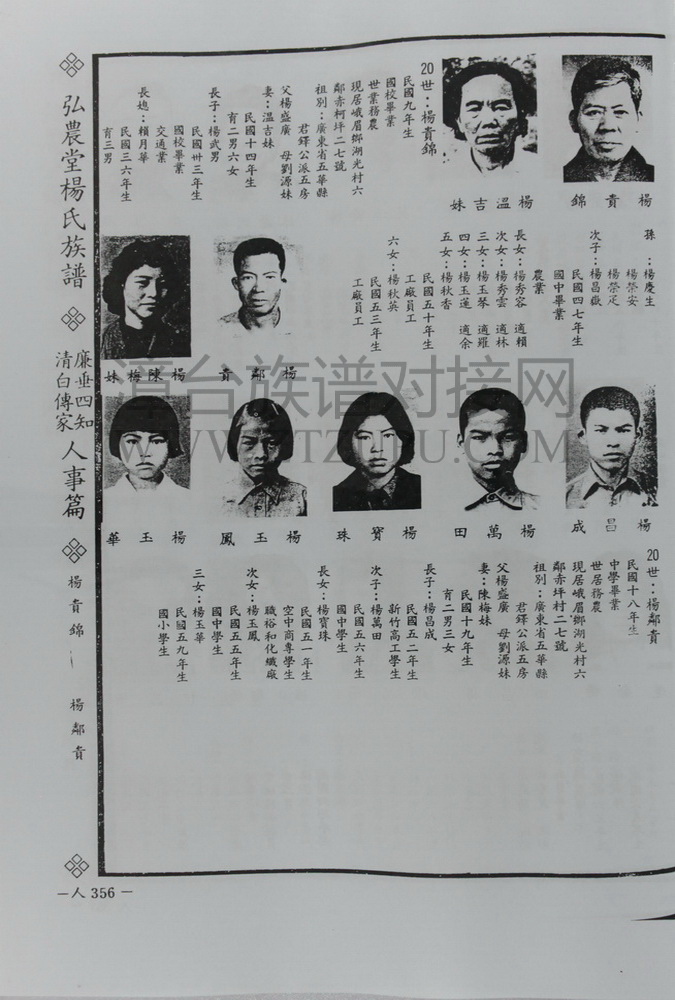 楊貴錦
楊溫吉妹
20世：楊貴錦
民國九年生
國校畢業
世業務農
現居峨眉鄉湖光村六
鄰赤柯坪二七號
祖別：廣東省五華縣
君鐸公派五房
父楊盛廣　母劉源妹
妻：溫吉妹
民國十四年生
育二男六女
長子：楊武男
民國卅三年生
國校畢業
交通業
長媳：賴月華
民國三六年生
育三男
孫：楊慶生
楊榮安
楊榮疋
次子：楊昌嶽
民國四七年生
國中畢業
農業
長女：楊秀容　適賴
次女：楊秀雲　適林
三女：楊玉琴　適羅
四女：楊玉蓮　適余
五女：楊秋香
民國五十年生
工廠員工
六女：楊秋英
民國五三年生
工廠員工
楊鄰貴
楊陳梅妹
楊昌成
楊萬田
楊寶珠
楊玉鳳
楊玉華
20世：楊鄰貴
民國十八年生
中學畢業
世居務農
現居峨眉鄉湖光村六
鄰赤坪村二七號
祖別：廣東省五華縣
君鐸公派五房
父楊盛廣　母劉源妹
妻：陳梅妹
民國十九年生
育二男三女
長子：楊昌成
民國五二年生
新竹高工學生
次子：楊萬田
民國五六年生
國中學生
長女：楊寶珠
民國五一年生
空中商專學生
職裕和化纖廠
次女：楊玉鳳
民國五五年生
國中學生
三女：楊玉華
民國五九年生
國小學生
弘農堂楊氏族譜
廉垂四知
清白傳家
人事篇
楊貴錦
楊鄰貴
—人 356—
漳台族谱对接网
WWW.ZTZUPU.COM